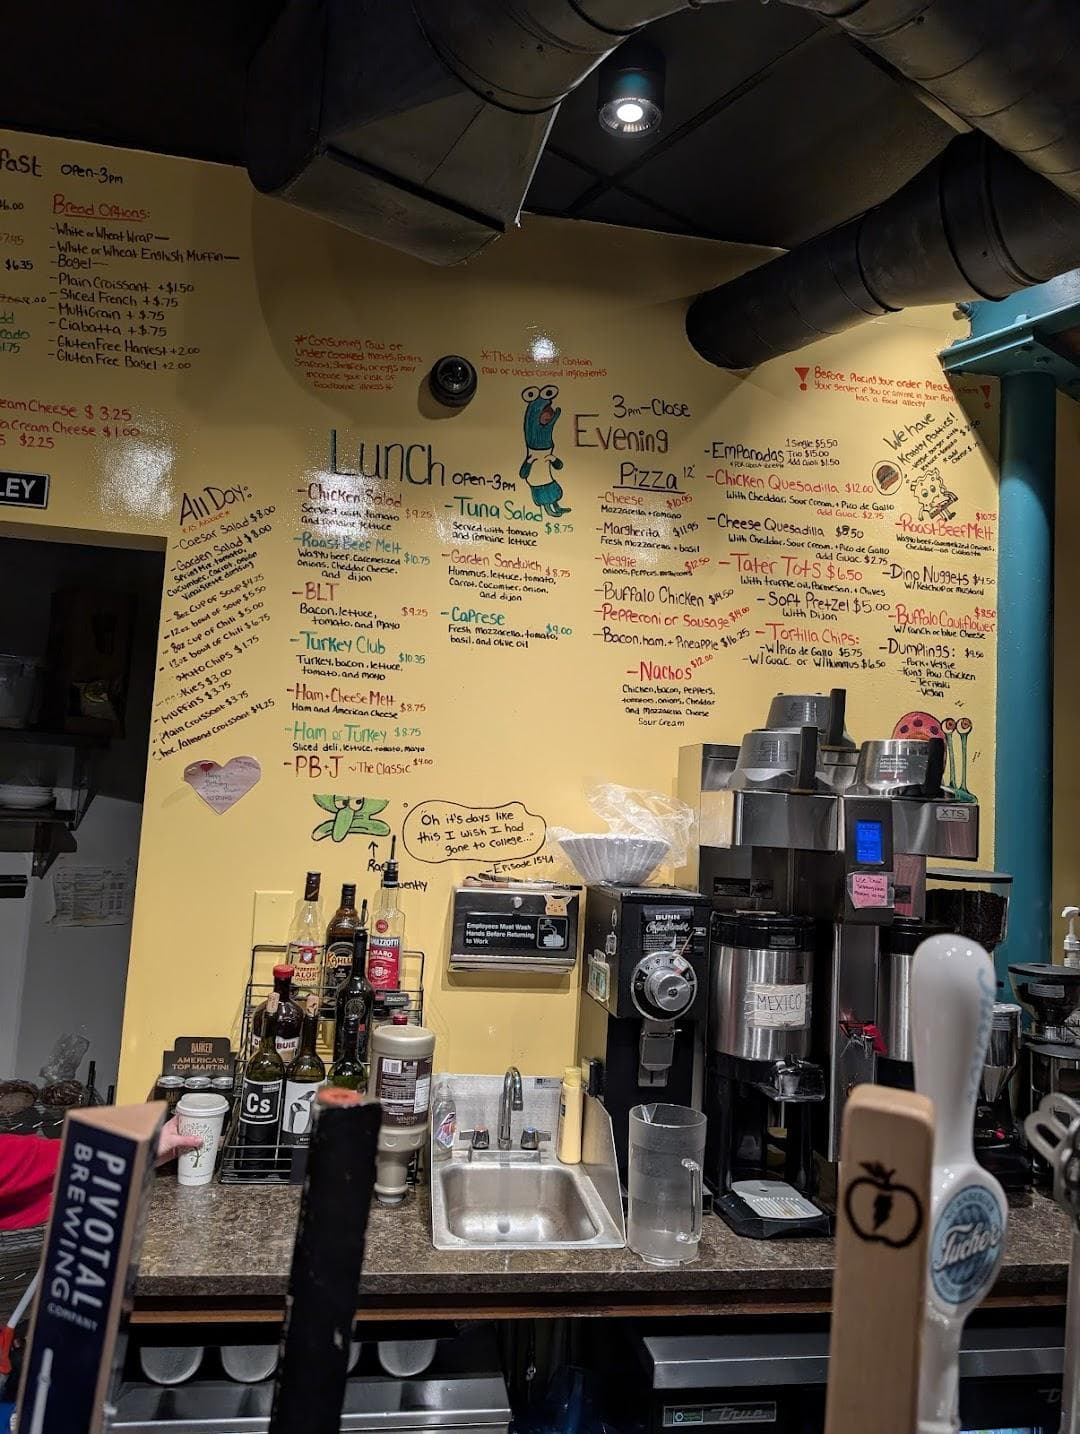 open-3pm
$6.00
$7.45
$6.35
$1.75
Bread Options:
-White or Wheat Wrap—
-White or Wheat English Muffin—
-Bagel—
-Plain Croissant +$1.50
-Sliced French +$.75
-MultiGrain +$.75
-Ciabatta +$.75
-Gluten Free Harvest +2.00
-Gluten Free Bagel +2.00
Cheese $3.25
Cream Cheese $1.00
$2.25
LEY
*Consuming raw or
undercooked meats, Poultry
Seafood, Shellfish, or eggs may
increase your risk of
foodborne illness*
*This item may contain
raw or undercooked ingredients
Before Placing your order Please
your server if you or anyone in your Party
has a Food allergy
All Day:
-Caesar Salad $8.00
-Garden Salad $8.00
Spring Mix, tomato,
cucumber, carrot, onion
vinaigrette dressing
-8oz cup of Soup $4.25
-12oz bowl of Soup $5.50
-8oz cup of Chili $5.00
-12oz bowl of Chili $6.75
Chips $1.75
$3.00
-Muffins $3.75
-Plain Croissant $3.75
Choc./almond Croissant $4.25
Lunch open-3pm
-Chicken Salad
Served with tomato $9.25
and romaine lettuce
-Roast Beef Melt
Wagyu beef, Caramelized $10.75
Onions, Cheddar Cheese,
and dijon
-BLT
Bacon, lettuce, $9.25
tomato, and Mayo
-Turkey Club
Turkey, bacon, lettuce, $10.35
tomato, and mayo
-Ham+Cheese Melt
Ham and American Cheese $8.75
-Ham or Turkey $8.75
Sliced deli, lettuce, tomato, mayo
-PB+J ~The Classic $4.00
-Tuna Salad
Served with tomato $8.75
and romaine lettuce
-Garden Sandwich
Hummus, lettuce, tomato, $8.75
Carrot, Cucumber, onion,
and dijon
-Caprese
Fresh Mozzarella, tomato, $9.00
basil, and olive oil
3pm-Close
Evening
Pizza 12"
-Cheese $10.95
Mozzarella + romano
-Margherita $11.95
Fresh mozzarella + basil
-Veggie $12.50
onions, Peppers, mushrooms
-Buffalo Chicken $14.50
-Pepperoni or Sausage $14.00
-Bacon, ham, + Pineapple $16.25
-Nachos $12.00
Chicken, bacon, Peppers,
tomatoes, onions, Cheddar
and Mozzarella Cheese
Sour Cream
-Empanadas 1 Single $5.50
Trio $15.00
Add Guac $1.50
-Chicken Quesadilla $12.00
With Cheddar, Sour Cream, + Pico de Gallo
add Guac. $2.75
-Cheese Quesadilla
With Cheddar, Sour Cream, + Pico de Gallo
add Guac $2.75
-Tater Tots $6.50
With truffle oil, Parmesan, + Chives
-Soft Pretzel $5.00
With Dijon
-Tortilla Chips:
-W/Pico de Gallo $5.75
-W/Guac. or W/Hummus $6.50
We have
Krabby Patties!
-Roast Beef Melt $10.75
Wagyu beef, Caramelized Onions,
Cheddar on Ciabatta
-Dino Nuggets $4.50
W/Ketchup or Mustard
-Buffalo Cauliflower $8.50
W/ranch or blue Cheese
-Dumplings: $9.50
-Pork+Veggie
-Kung Pow Chicken
-Teriyaki
-Vegan
"Oh it's days like
this I wish I had
gone to College..."
-Episode 154A
Employees Must Wash
Hands Before Returning
to Work
BUNN
XTS
MEXICO
BARKER
AMERICA'S
TOP MARTINI
Cs
PIVOTAL
BREWING
COMPANY
Tucher
True